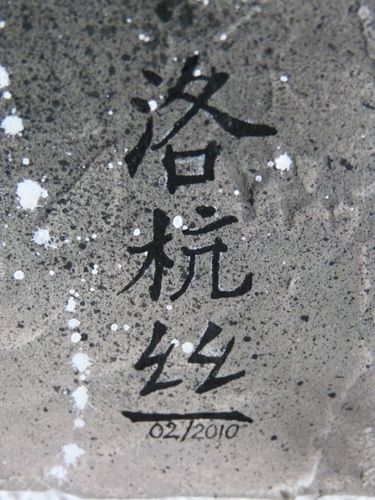 洛
杭
丝
02/2010